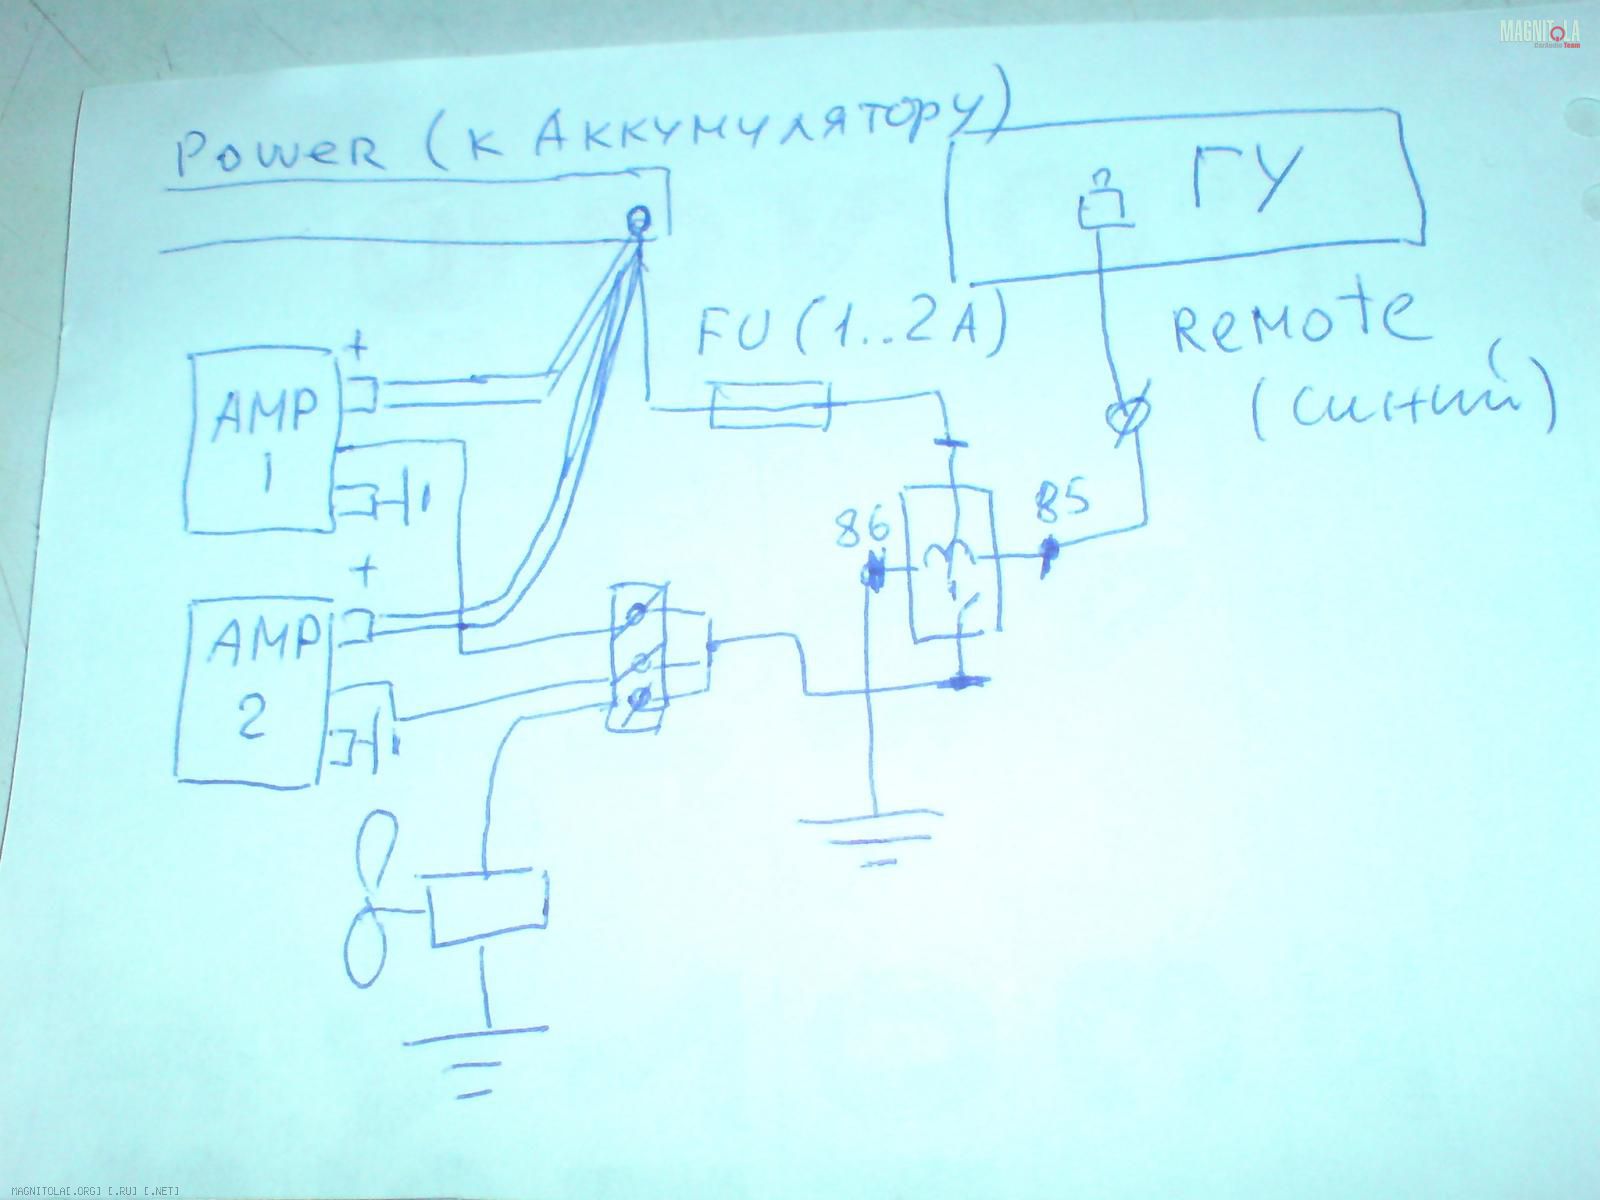 MAGNITOLA
CarAudio Team
Power (к Аккумулятору)
ГУ
FU (1..2A)
Remote
(синий)
+
AMP
1
86
85
+
AMP
2
MAGNITOLA[.ORG] [.RU] [.NET]